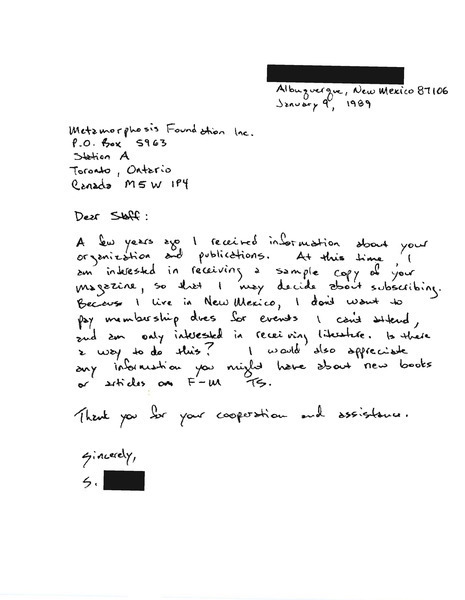 Albuquerque, New Mexico 87106
January 9, 1989
Metamorphosis Foundation Inc.
P.O. Box 5963
Station A
Toronto, Ontario
Canada M5W 1P4
Dear Staff:
A few years ago I received information about your
organization and publications. At this time, I
am interested in receiving a sample copy of your
magazine, so that I may decide about subscribing.
Because I live in New Mexico, I don't want to
pay membership dues for events I can't attend,
and am only interested in receiving literature. Is there
a way to do this? I would also appreciate
any information you might have about new books
or articles on F-M TS.
Thank you for your cooperation and assistance.
Sincerely,
S.